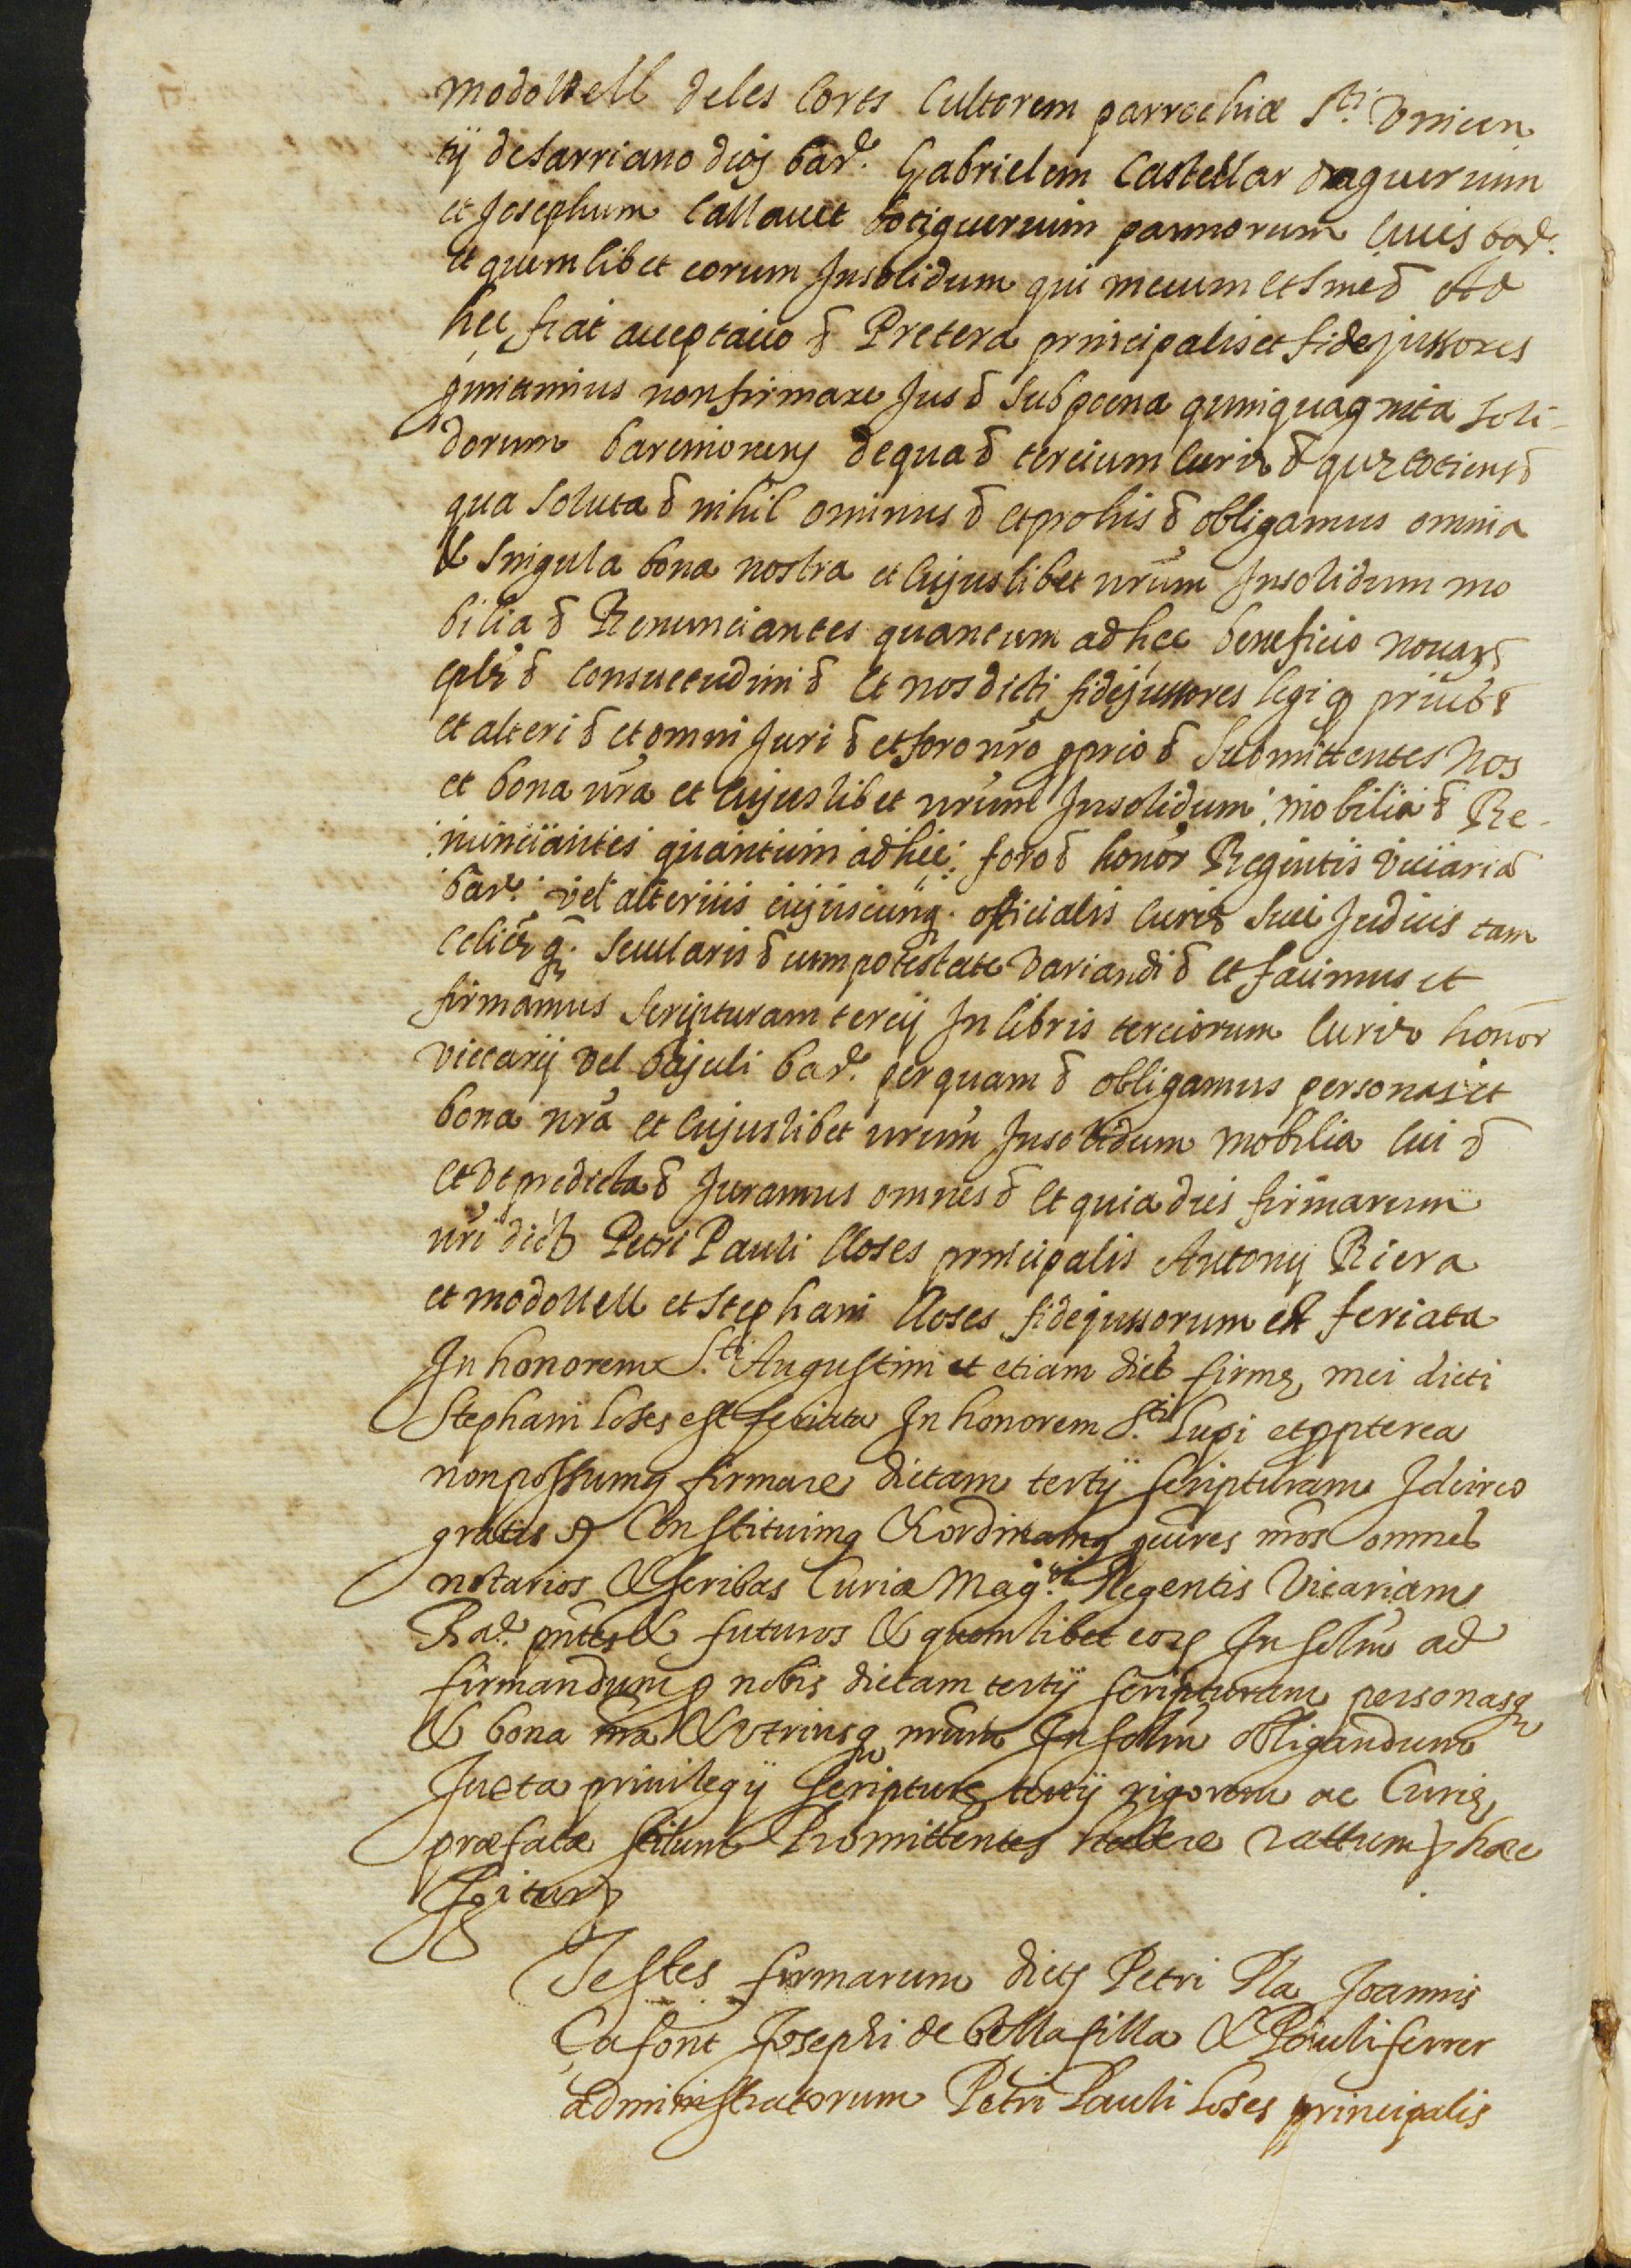 modolell deles Corts Cultorem parrochiæ S.ti Vnicen
tÿ de Sarriano dioş bar.e Gabrielem Castellar droguerium
et Josephum Callauet botiguerium pannorum Ciues bar.e
et quemlibet eorum Insolidum qui mecum et sine δ Ad
hec fiat acceptatio δ Pretera principalis et fidejussores
gmittimus non firmare Jus δ sub poena quinquaginta soli-
dorum barcinonens de qua δ tercium Curiæ δ que totiens δ
qua soluta δ nihil ominus δ et pro his δ obligamus omnia
& singula bona nostra et Cujuslibet nrum Insolidum mo
bilia δ Renunciantes quantum ad hec beneficio nouar δ
eplæ δ Consuetudini δ et nos dicti fidejussores legi q priũs δ
et alteri δ et omni Juri δ et foro nrõ pprio δ Submittentes Nos
et bona nrã et Cujuslibet nrũm Insolidum mobilia δ Re-
nunciantes quantum ad hec foro δ honor Regentis Viccariã
bar.e vel alterius cujuscunq. officialis Curiæ siue Judicis tam
eclicẽ q. secularis δ cum potestate Variandi δ et facimus et
firmamus Scripturam tercij In libris terciorum Curiæ honor
Viccarij vel bajuli bar.e per quam δ obligamus personas et
bona nrã et Cujuslibet nrum Insolidum mobilia Cui δ
et de predicta δ Juramus omnes δ et quia dies firmarum
nri dict Petri Pauli lloses principalis Antonij Riera
et modolell et Stephani lloses fidejussorum est feriata
In honorem S.ti Augustini et etiam dict firmę mei dicti
Stephani loses est feriata In honorem S.ti Lupi et ppterea
non possumq firmare dictam tertij scripturam Idcirco
gratis & Constituimq & ordinamq pcũres nrõs omnes
notarios & scribas Curiæ Mag.ci Regentis Vicariam
Bar.e pntes & futuros & quemlibet eor Insolũ ad
firmandum p nobis dictam tertij scripturam personasq
& bona nrã & vtriusq nrũm Insolũ obligandum
Juxta priuilegij scripturę tertij rigorem ac Curię
præfatæ stilum Promittentes habere rattum & hæc
Igitur
Testes firmarum dict Petri Pla Joannis
Çafont Josephi de bellafilla & Pauli ferrer
administratorum Petri Pauli loses principalis